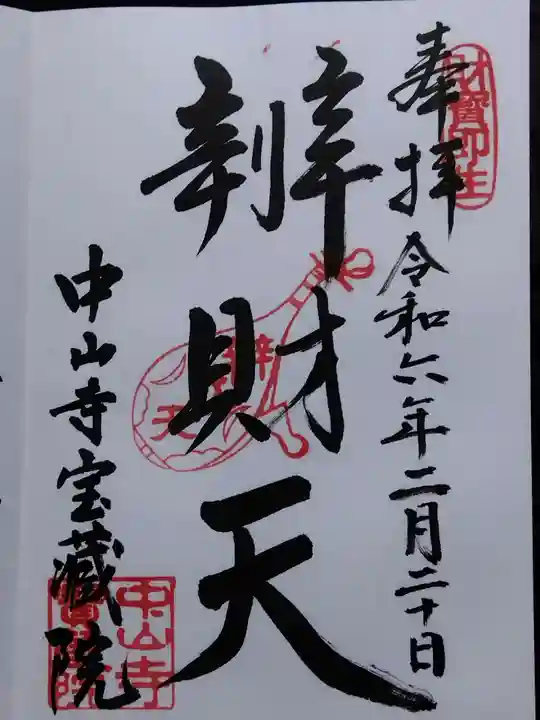 奉拝
令和六年二月二十日
辨財天
中山寺宝蔵院
中山寺